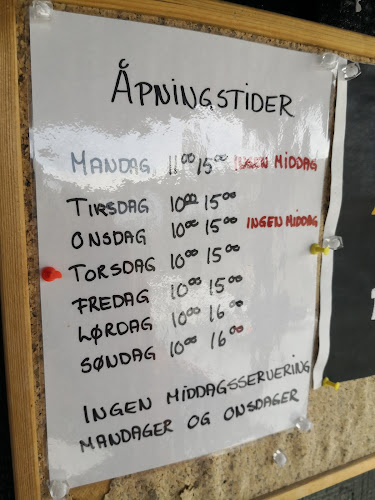 ÅPNINGSTIDER
MANDAG 11⁰⁰ 15⁰⁰ INGEN MIDDAG
TIRSDAG 10⁰⁰ 15⁰⁰
ONSDAG 10⁰⁰ 15⁰⁰ INGEN MIDDAG
TORSDAG 10⁰⁰ 15⁰⁰
FREDAG 10⁰⁰ 15⁰⁰
LØRDAG 10⁰⁰ 16⁰⁰
SØNDAG 10⁰⁰ 16⁰⁰
INGEN MIDDAGSSERVERING
MANDAGER OG ONSDAGER